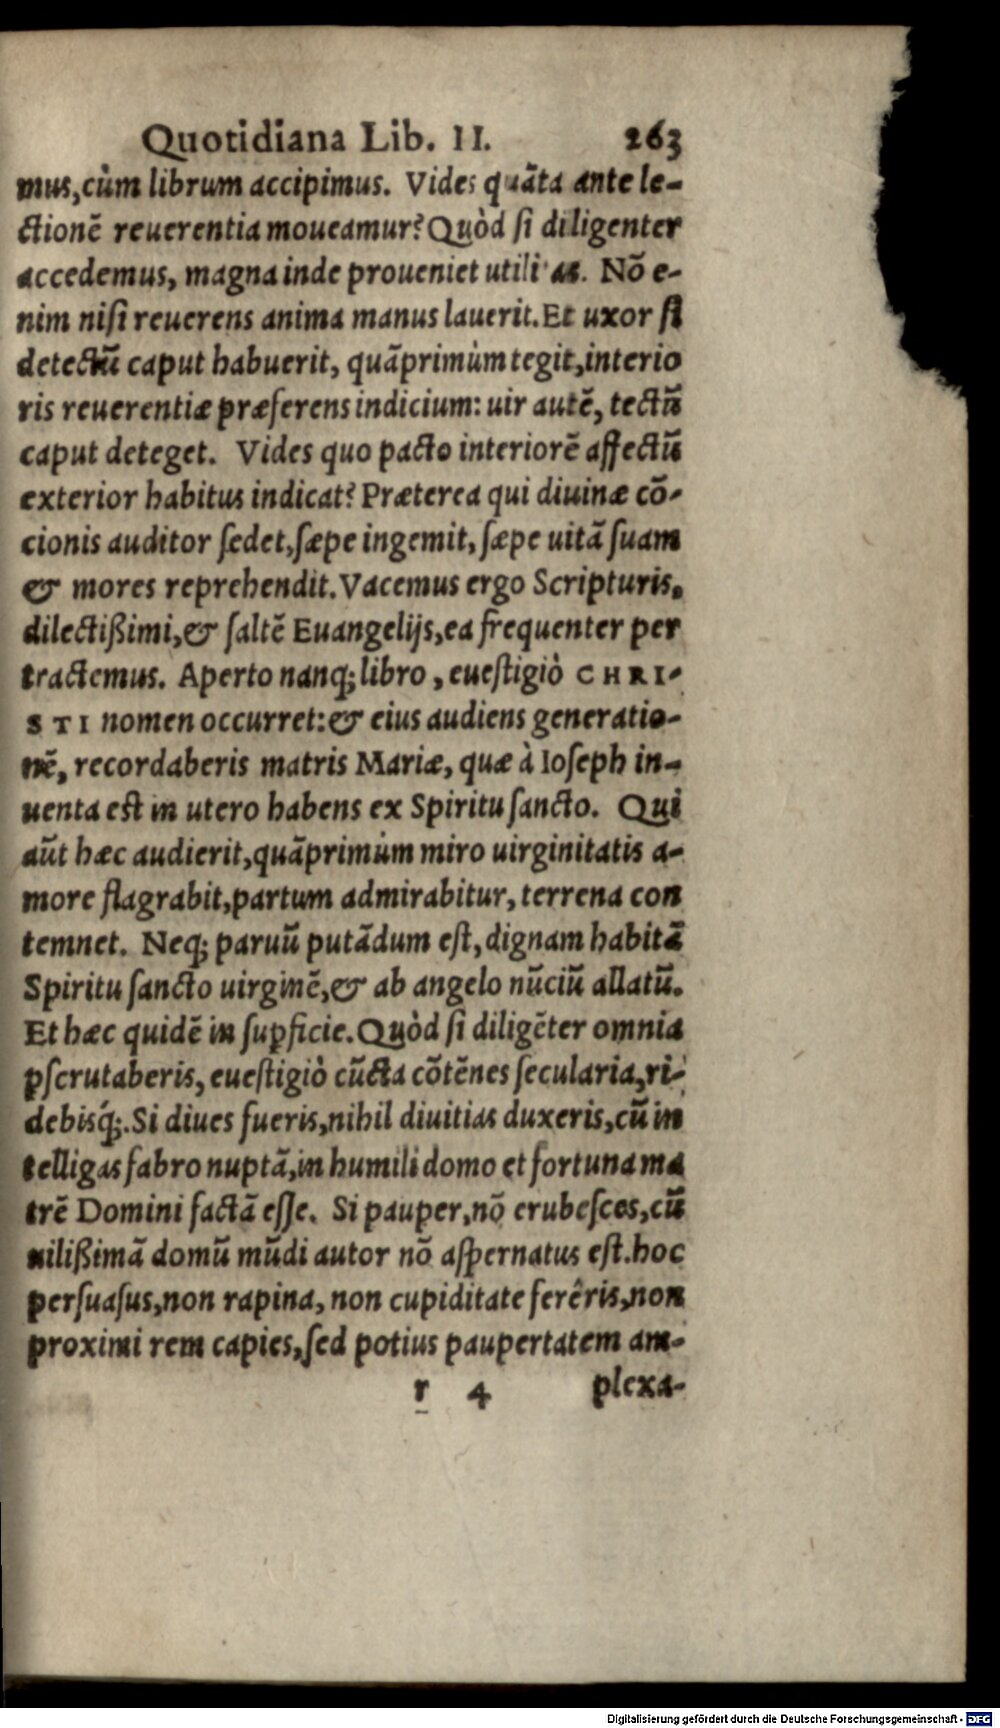 Quotidiana Lib. II. 263
mus,cùm librum accipimus. Vides quãta ante le-
ctionẽ reuerentia moueamur? Quòd ſi diligenter
accedemus, magna inde proueniet utilitas. Nõ e-
nim niſi reuerens anima manus lauerit. Et uxor ſi
detectũ caput habuerit, quãprimùm tegit,interio
ris reuerentiæ præferens indicium: uir autẽ, tectũ
caput deteget. Vides quo pacto interiorẽ affectũ
exterior habitus indicat? Præterea qui diuinæ cõ-
cionis auditor ſedet,ſæpe ingemit, ſæpe uitã ſuam
& mores reprehendit. Vacemus ergo Scripturis,
dilectißimi,& ſaltẽ Euangelijs,ea frequenter per
tractemus. Aperto nanq; libro, eueſtigiò CHRI-
STI nomen occurret:& eius audiens generatio-
nẽ, recordaberis matris Mariæ, quæ à Ioſeph in-
uenta eſt in utero habens ex Spiritu ſancto. Qui
aũt hæc audierit,quãprimùm miro uirginitatis a-
more flagrabit,partum admirabitur, terrena con
temnet. Neq; paruũ putãdum eſt, dignam habitã
Spiritu ſancto uirginẽ,& ab angelo nũciũ allatũ.
Et hæc quidẽ in ſuꝑficie. Quòd ſi diligẽter omnia
ꝑſcrutaberis, eueſtigiò cũcta cõtẽnes ſecularia,ri-
debisq́;. Si diues fueris,nihil diuitias duxeris,cũ in
telligas fabro nuptã,in humili domo et fortuna ma
trẽ Domini factã eſſe. Si pauper,nõ erubeſces,cũ
uilißimã domũ mũdi autor nõ aſpernatus eſt.hoc
perſuaſus,non rapina, non cupiditate ferêris,non
proximi rem capies,ſed potius paupertatem am-
r 4 plexa-
Digitalisierung gefördert durch die Deutsche Forschungsgemeinschaft - DFG